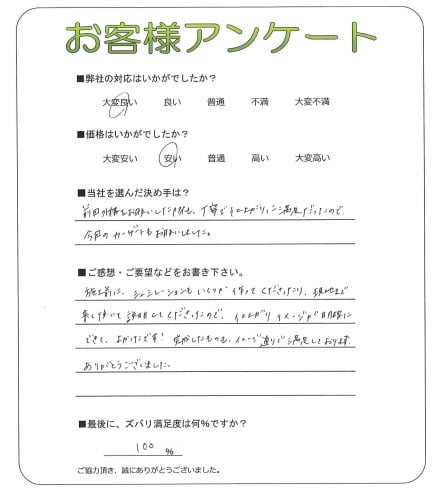 お客様アンケート
■弊社の対応はいかがでしたか？
大変良い 良い 普通 不満 大変不満
■価格はいかがでしたか？
大変安い 安い 普通 高い 大変高い
■当社を選んだ決め手は？
前回外構をお願いした時も、丁寧で仕上がりに満足だったので
今回のカーゲートもお願いしました。
■ご感想・ご要望などをお書き下さい。
施工前に、シュミレーションもいくつか作ってくださったり、現地まで
来て頂いて説明してくださったので、仕上がりイメージが明確に
できて、よかったです！完成したものも、イメージ通りで満足しております
ありがとうございました。
■最後に、ズバリ満足度は何%ですか？
100 %
ご協力頂き、誠にありがとうございました。